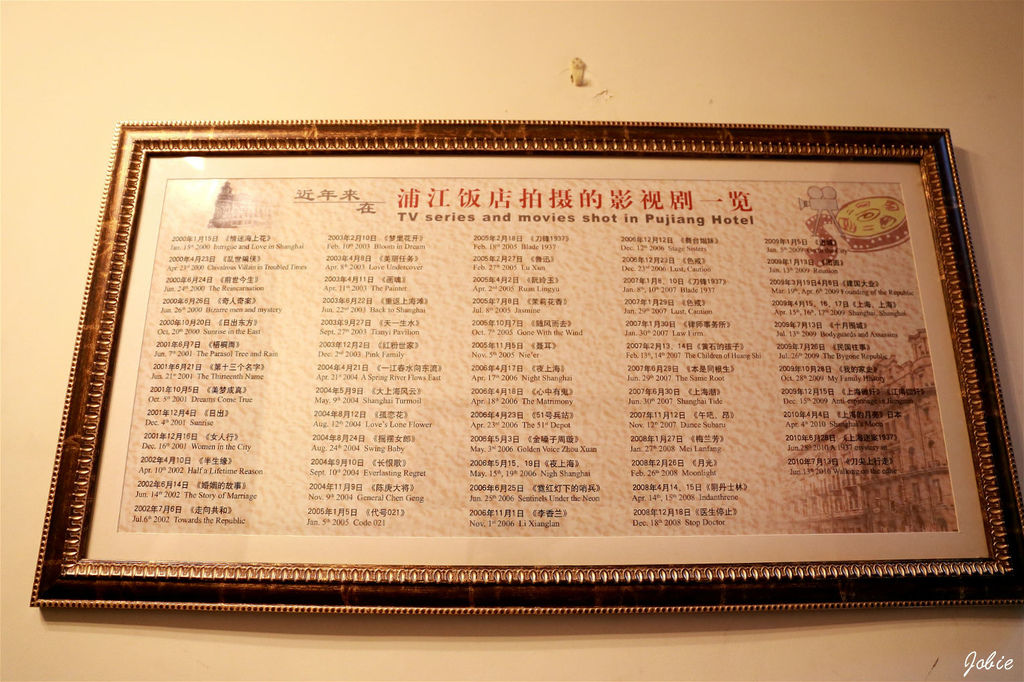 近年来
在
浦江饭店拍摄的影视剧一览
TV series and movies shot in Pujiang Hotel
2000年1月15日 《情迷海上花》
Jan. 15th 2000 Intrigue and Love in Shanghai
2000年4月23日 《乱世骗侠》
Apr. 23rd 2000 Chivalrous Villain in Troubled Times
2000年6月24日 《前世今生》
Jun. 24th 2000 The Reincarnation
2000年6月26日 《奇人奇案》
Jun. 26th 2000 Bizarre men and mystery
2000年10月20日 《日出东方》
Oct. 20th 2000 Sunrise in the East
2001年6月7日 《梧桐雨》
Jun. 7th 2001 The Parasol Tree and Rain
2001年6月21日 《第十三个名字》
Jun. 21st 2001 The Thirteenth Name
2001年10月5日 《美梦成真》
Oct. 5th 2001 Dreams Come True
2001年12月4日 《日出》
Dec. 4th 2001 Sunrise
2001年12月16日 《女人行》
Dec. 16th 2001 Women in the City
2002年4月10日 《半生缘》
Apr. 10th 2002 Half a Lifetime Reason
2002年6月14日 《婚姻的故事》
Jun. 14th 2002 The Story of Marriage
2002年7月6日 《走向共和》
Jul.6th 2002 Towards the Republic
2003年2月10日 《梦里花开》
Feb. 10th 2003 Bloom in Dream
2003年4月8日 《美丽任务》
Apr. 8th 2003 Love Undercover
2003年4月11日 《画魂》
Apr. 11th 2003 The Painter
2003年6月22日 《重返上海滩》
Jun. 22nd 2003 Back to Shanghai
2003年9月27日 《天一生水》
Sept. 27th 2003 Tianyi Pavilion
2003年12月2日 《红粉世家》
Dec. 2nd 2003 Pink Family
2004年4月21日 《一江春水向东流》
Apr. 21st 2004 A Spring River Flows East
2004年5月9日 《大上海风云》
May. 9th 2004 Shanghai Turmoil
2004年8月12日 《孤恋花》
Aug. 12th 2004 Love's Lone Flower
2004年8月24日 《摇摆女郎》
Aug. 24th 2004 Swing Baby
2004年9月10日 《长恨歌》
Sept. 10th 2004 Everlasting Regret
2004年11月9日 《陈庚大将》
Nov. 9th 2004 General Chen Geng
2005年1月5日 《代号021》
Jan. 5th 2005 Code 021
2005年2月18日 《刀锋1937》
Feb. 18th 2005 Blade 1937
2005年2月27日 《鲁迅》
Feb. 27th 2005 Lu Xun
2005年4月2日 《阮玲玉》
Apr. 2nd 2005 Ruan Lingyu
2005年7月8日 《茉莉花香》
Jul. 8th 2005 Jasmine
2005年10月7日 《随风而去》
Oct. 7th 2005 Gone With the Wind
2005年11月5日 《聂耳》
Nov. 5th 2005 Nie'er
2006年4月17日 《夜上海》
Apr. 17th 2006 Night Shanghai
2006年4月18日 《心中有鬼》
Apr. 18th 2006 The Matrimony
2006年4月23日 《51号兵站》
Apr. 23rd 2006 The 51st Depot
2006年5月3日 《金嗓子周璇》
May. 3rd 2006 Golden Voice Zhou Xuan
2006年5月15、19日《夜上海》
May. 15th, 19th 2006 Nigh Shanghai
2006年6月25日 《霓虹灯下的哨兵》
Jun. 25th 2006 Sentinels Under the Neon
2006年11月1日 《李香兰》
Nov, 1st 2006 Li Xianglan
2006年12月12日 《舞台姐妹》
Dec. 12th 2006 Stage Sisters
2006年12月23日 《色戒》
Dec. 23rd 2006 Lust, Caution
2007年1月8、10日《刀锋1937》
Jan. 8th, 10th 2007 Blade 1937
2007年1月29日 《色戒》
Jan. 29th 2007 Lust, Caution
2007年1月30日 《律师事务所》
Jan. 30th 2007 Law Firm
2007年2月13、14日《黄石的孩子》
Feb. 13th, 14th 2007 The Children of Huang Shi
2007年6月29日 《本是同根生》
Jun. 29th 2007 The Same Root
2007年6月30日 《上海潮》
Jun. 30th 2007 Shanghai Tide
2007年11月12日 《午吧、昂》
Nov. 12th 2007 Dance Subaru
2008年1月27日 《梅兰芳》
Jan. 27th 2008 Mei Lanfang
2008年2月26日 《月光》
Feb. 26th 2008 Moonlight
2008年4月14、15日《阴丹士林》
Apr. 14th, 15th 2008 Indanthrene
2008年12月18日《医生停止》
Dec. 18th 2008 Stop Doctor
2009年1月5日
Jan. 5th 2009
2009年1月13日 《团圆》
Jan. 13th 2009 Reunion
2009年3月19日4月6日《建国大业》
Mar. 19th, Apr. 6th 2009 Founding of the Republic
2009年4月15、16、17日《上海、上海》
Apr. 15th, 16th, 17th 2009 Shanghai, Shanghai
2009年7月13日 《十月围城》
Jul. 13th 2009 Bodyguards and Assassins
2009年7月26日 《民国往事》
Jul. 26th 2009 The Bygone Republic
2009年10月28日 《我的家史》
Oct. 28th 2009 My Family History
2009年12月15日 《上海锄奸》《江南锄奸》
Dec. 15th 2009 Anti-espionage in
2010年4月4日 《上海的月亮》日本
Apr. 4th 2010 Shanghai's Moon
2010年6月28日 《上海迷案1937》
Jun.28th 2010 A 1937 mystery in
2010年7月13日 《刀尖上行走》
Jun. 13th 2010 Walking on the
Jobie